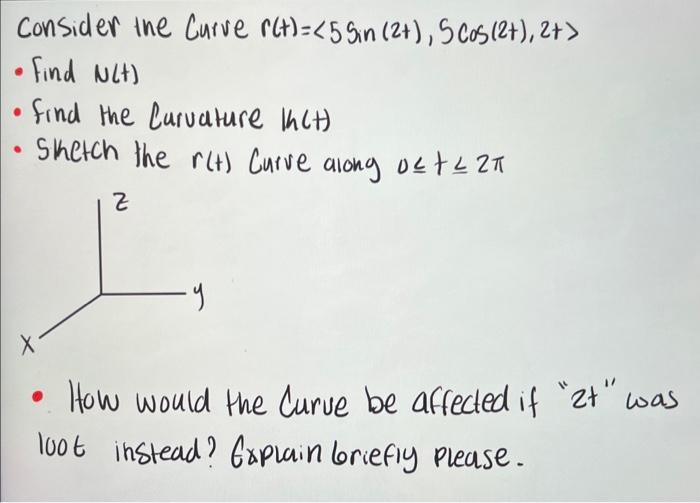 Consider the Curve r(t)=<5 Sin (2t), 5 cos(2t), 2t>
• Find N(t)
• find the Curvature k(t)
• Sketch the r(t) Curve along 0≤t≤2π
z
y
x
• How would the Curve be affected if "2t" was
100t instead? Explain briefly please.